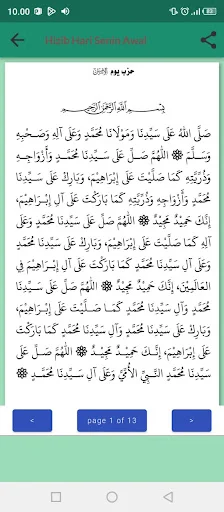 10.00
Hizib Hari Senin Awal
حِزْب يوم الاِثْنَيْنِ
بِسْمِ اللَّهِ الرَّحْمَنِ الرَّحِيمِ
صَلَّى اللهُ عَلَى سَيِّدِنَا وَمَوْلَانَا مُحَمَّدٍ وَعَلَى آلِهِ وَصَحْبِهِ
وَسَلَّمَ ۞ اللَّهُمَّ صَلِّ عَلَى سَيِّدِنَا مُحَمَّدٍ وَأَزْوَاجِهِ
وَذُرِّيَّتِهِ كَمَا صَلَّيْتَ عَلَى إِبْرَاهِيْمَ، وَبَارِكْ عَلَى سَيِّدِنَا
مُحَمَّدٍ وَأَزْوَاجِهِ وَذُرِّيَّتِهِ كَمَا بَارَكْتَ عَلَى آلِ إِبْرَاهِيْمَ،
إِنَّكَ حَمِيْدٌ مَجِيْدٌ ۞ اللَّهُمَّ صَلِّ عَلَى سَيِّدِنَا مُحَمَّدٍ وَعَلَى
آلِهِ كَمَا صَلَّيْتَ عَلَى إِبْرَاهِيْمَ، وَبَارِكْ عَلَى سَيِّدِنَا مُحَمَّدٍ
وَعَلَى آلِ سَيِّدِنَا مُحَمَّدٍ كَمَا بَارَكْتَ عَلَى آلِ إِبْرَاهِيْمَ فِي
الْعَالَمِيْنَ، إِنَّكَ حَمِيْدٌ مَجِيْدٌ ۞ اللَّهُمَّ صَلِّ عَلَى سَيِّدِنَا
مُحَمَّدٍ وَآلِ سَيِّدِنَا مُحَمَّدٍ كَمَا صَلَّيْتَ عَلَى إِبْرَاهِيْمَ،
وَبَارِكْ عَلَى سَيِّدِنَا مُحَمَّدٍ وَآلِ سَيِّدِنَا مُحَمَّدٍ كَمَا بَارَكْتَ
عَلَى إِبْرَاهِيْمَ، إِنَّكَ حَمِيْدٌ مَجِيْدٌ ۞ اللَّهُمَّ صَلِّ عَلَى
سَيِّدِنَا مُحَمَّدٍ النَّبِيِّ الْأُمِّيِّ وَعَلَى آلِ سَيِّدِنَا مُحَمَّدٍ ۞
< page 1 of 13 >